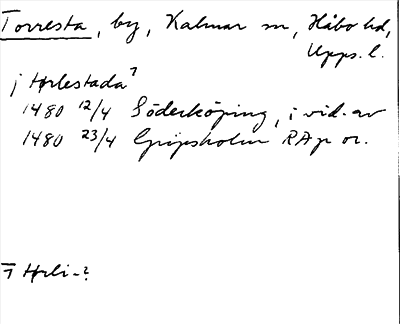 Torresta, by, Kalmar sn, Håbo hd,
Upps. l.
j Hørlestada⁷
1480 12/4 Söderköping, i vid. av
1480 23/4 Gripsholm RAp or.
⁊ Hørli-?